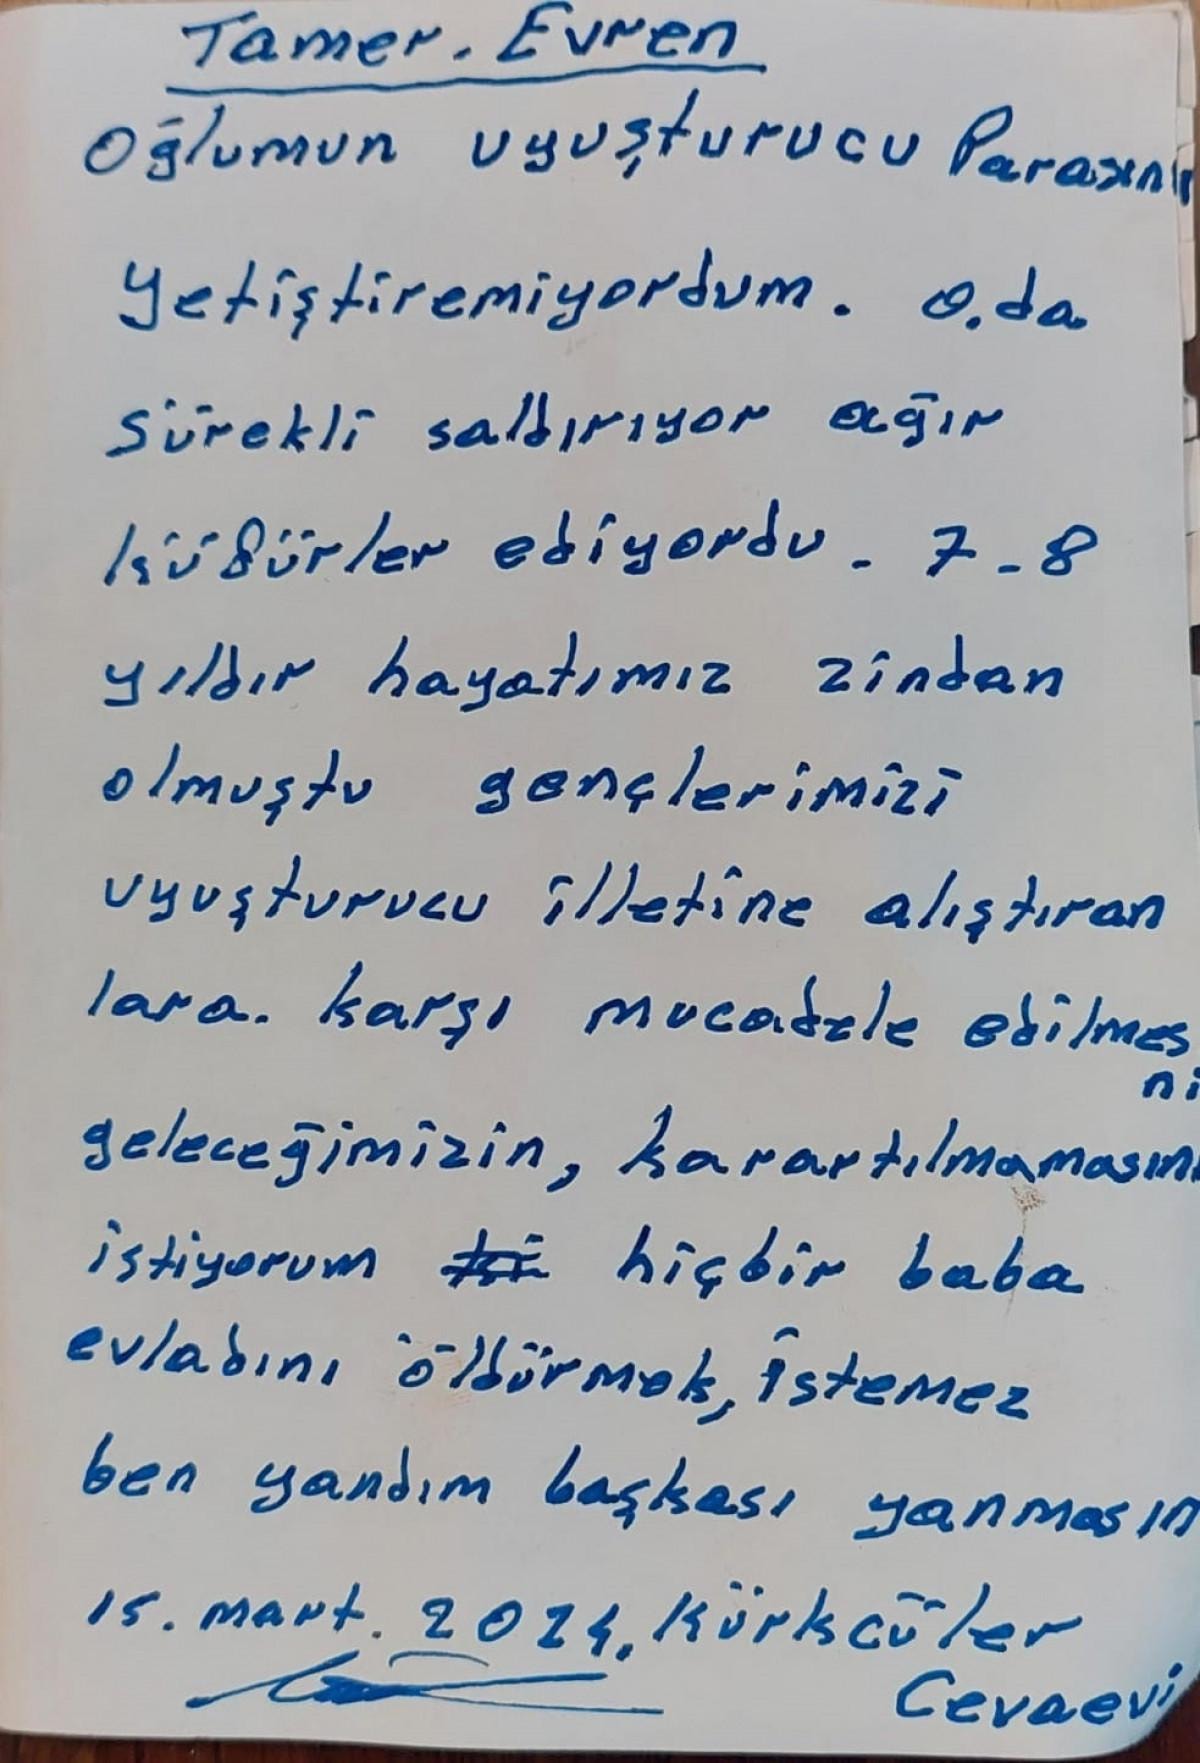 Tamer. Evren
Oğlumun uyuşturucu Parasını
Yetiştiremiyordum. O.da
Sürekli saldırıyor ağır
küfürler ediyordu. 7-8
yıldır hayatımız zindan
olmuştu gençlerimizi
uyuşturucu illetine alıştıran
lara. karşı mucadele edilmes
ni
geleceğimizin, karartılmamasını
istiyorum hiçbir baba
evladını öldürmek, istemez
ben yandım başkası yanmasın
15. mart. 2024. Kürkcüler
Cevaevi